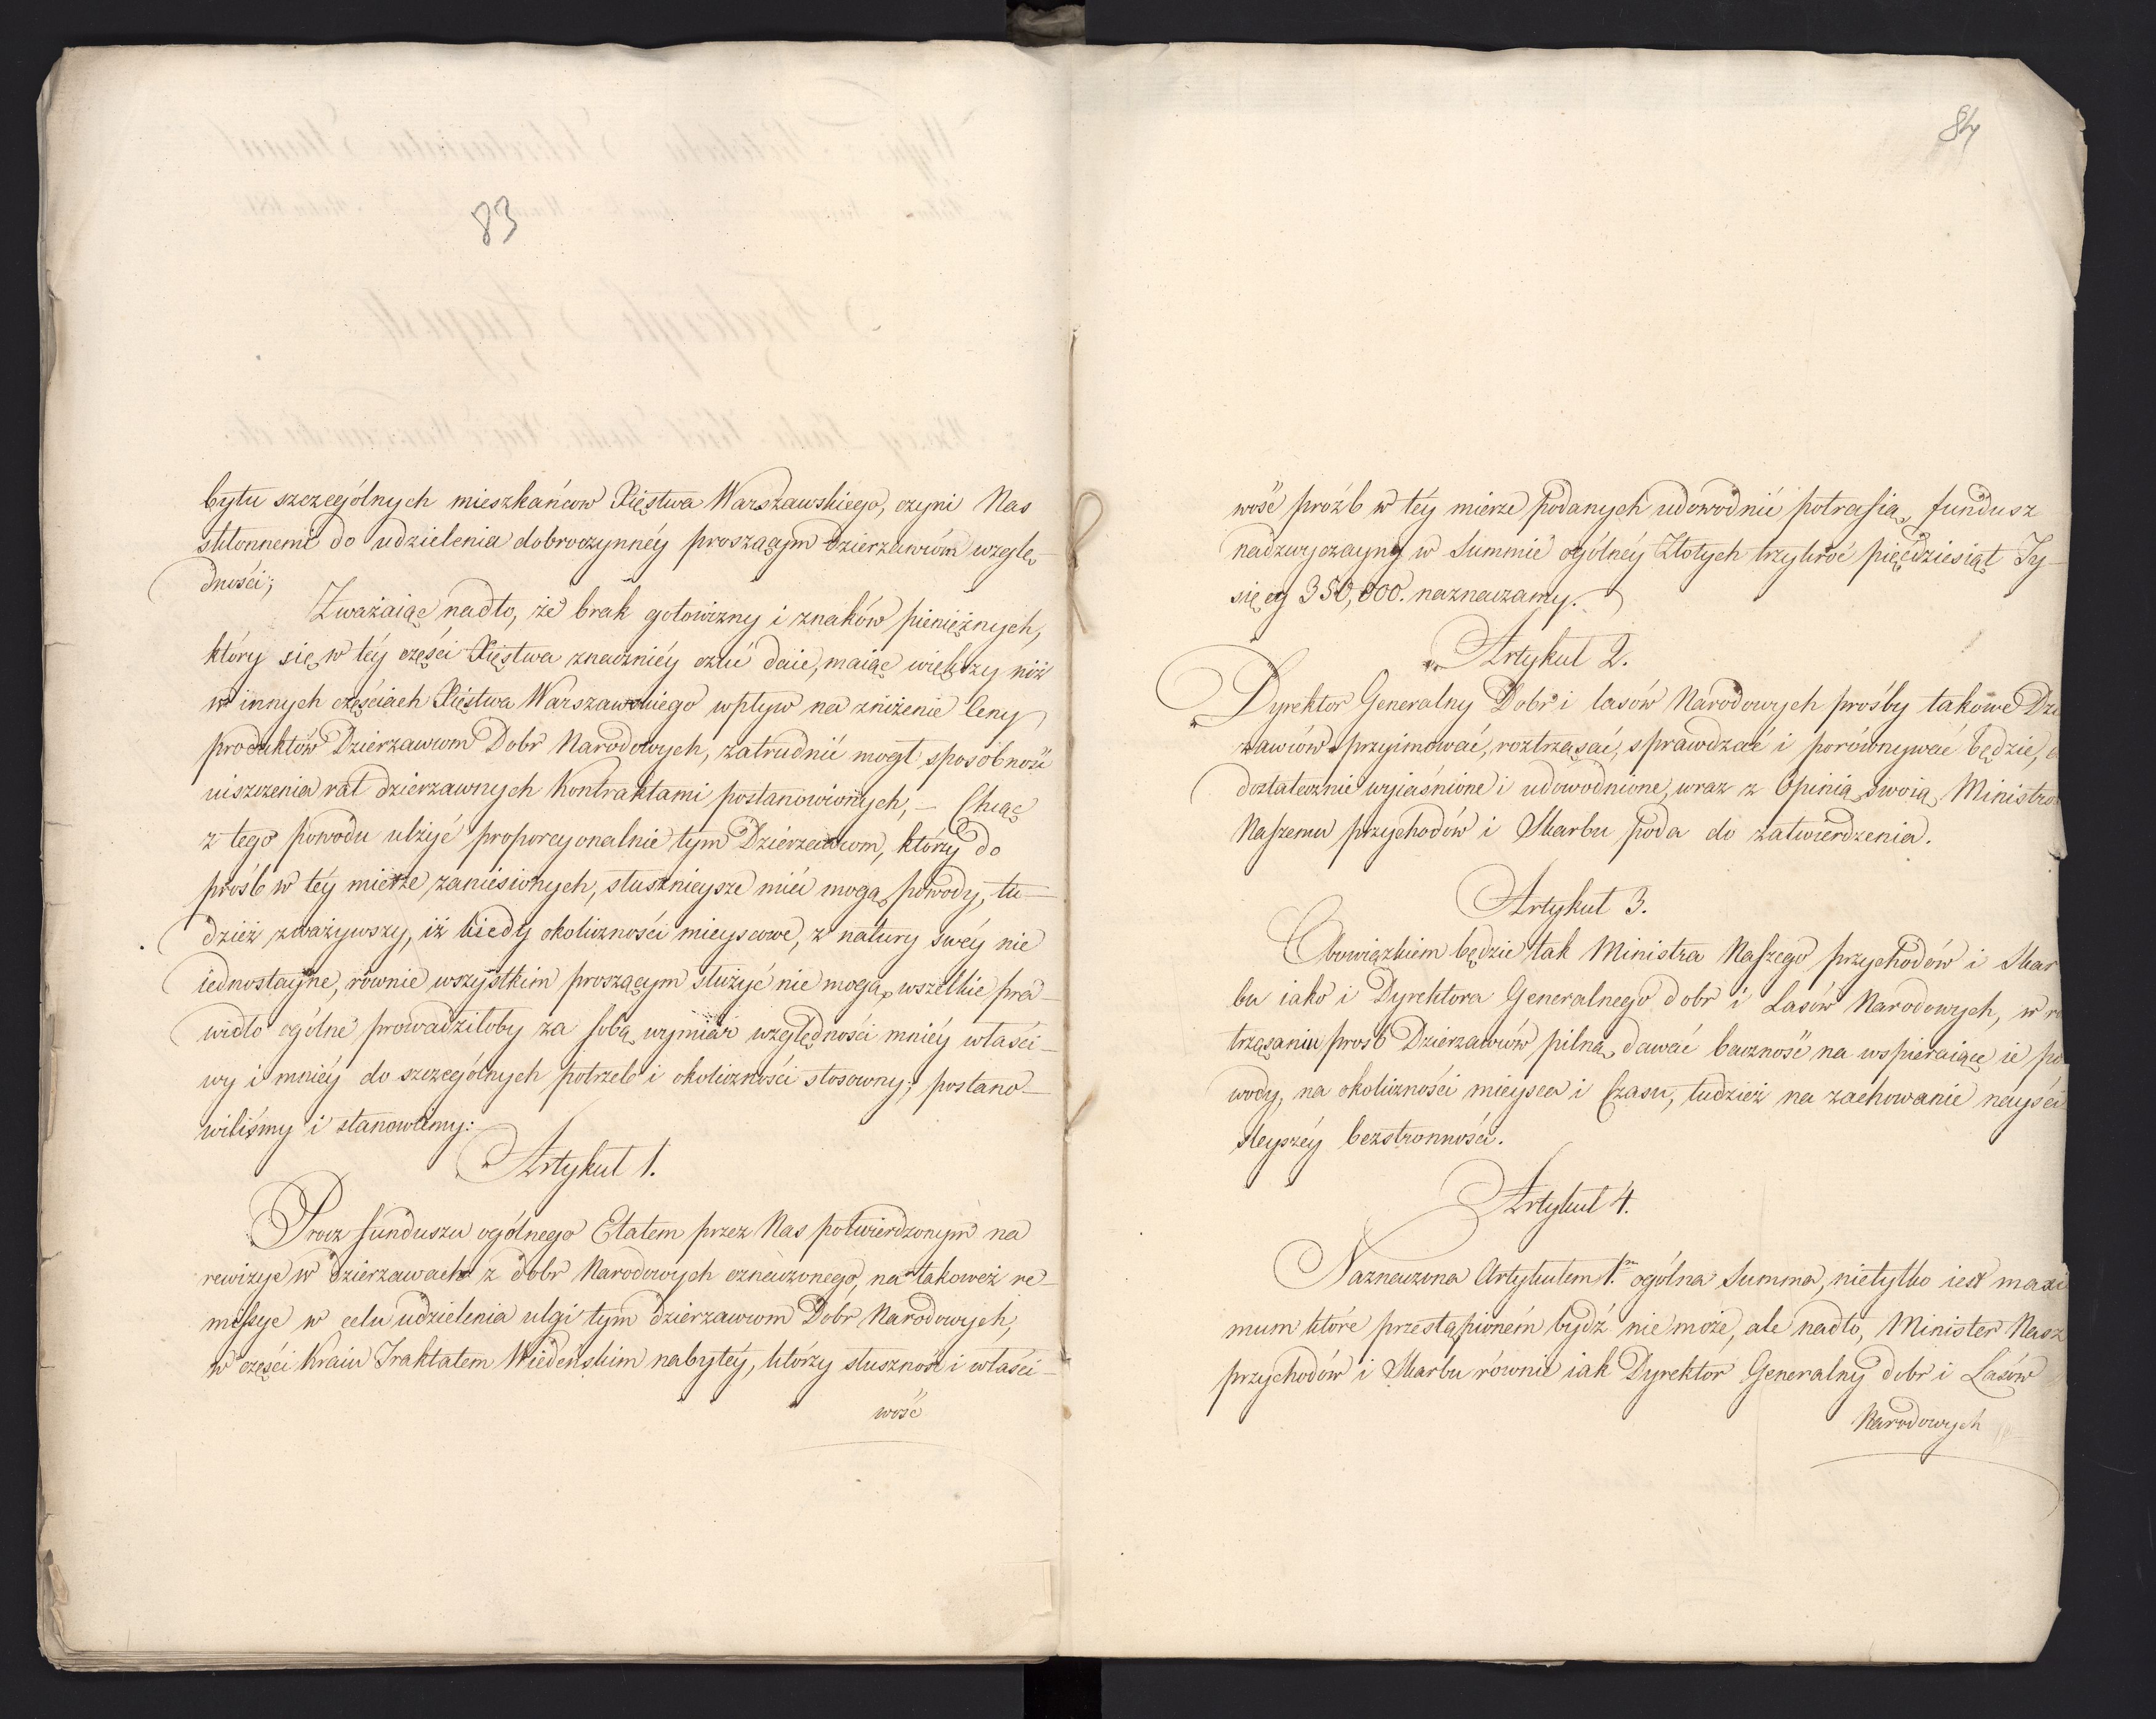 83
bytu szczególnych mieszkańców Xięstwa Warszawskiego, czyni Nas
skłonnemi do udzielenia dobroczynnéy proszącym Dzierzawcóm wzglę-
dności;
Zważaiąc nadto, że brak gotowizny i znaków pieniężnych,
który się w téy części Xięstwa znaczniéy czuć daie, maiąc większy niż
w innych częściach Xięstwa Warszawskiego wpływ na zniżenie Ceny
produktów Dzierzawcom Dobr Narodowych, zatrudnić mogł sposobność
uiszczenia rat dzierzawnych Kontraktami postanowionych, — Chcąc
z tego powodu ulżyć proporcyonalnie tym Dzierzawcom, którzy do
prośb w téy mierze zaniesionych, słusznieysze mieć mogą powody, tu-
dzież zważywszy, iż kiedy okoliczności mieyscowe, z natury swéy nie
iednostayne, równie wszystkim proszącym służyć nie mogą, wszelkie pra-
widło ogólne prowadziłoby za sobą wymiar względności mniéy właści-
wy i mniéy do szczególnych potrzeb i okoliczności stosowny; postano-
wiliśmy i stanowimy:
Artykuł 1.
Procz funduszu ogólnego Etatem przez Nas potwierdzonym na
rewizye w dzierzawach z dobr Narodowych oznaczonego, na takoweż re-
missye w celu udzielenia ulgi tym dzierzawcom Dobr Narodowych,
w części Kraiu Traktatem Wiedenskim nabytéy, którzy słuszność i właści-
wość
84
wość proźb w téy mierze podanych udowodnić potrafią, fundusz
nadzwyczayny w Summie ogólnéy Złotych trzykroć pięćdziesiąt Ty-
sięcy 350,000. naznaczamy.
Artykuł 2.
Dyrektor Generalny Dobr i lasów Narodowych prośby takowe Dzier
zawców przyimować, roztrząsać, sprawdzać i porównywać będzie, a
dostatecznie wyiaśnione i udowodnione, wraz z Opinią swoią Ministrowi
Naszemu przychodów i Skarbu poda do zatwierdzenia.
Artykuł 3.
Obowiązkiem będzie tak Ministra Naszego przychodów i Skar
bu iako i Dyrektora Generalnego dobr i Lasów Narodowych, w ro
trząsaniu prosb Dzierzawców pilną dawać baczność na wspieraiące ie po
wody, na okoliczności mieysca i Czasu, tudzież na zachowanie nayści
śleyszéy bezstronności.
Artykuł 4.
Naznaczona Artykułem 1.m ogólna Summa, nietylko iest maxi
mum które przestąpioném bydź nie może, ale nadto, Minister Nasz
przychodów i Skarbu równie iak Dyrektor Generalny dobr i Lasów
Narodowych